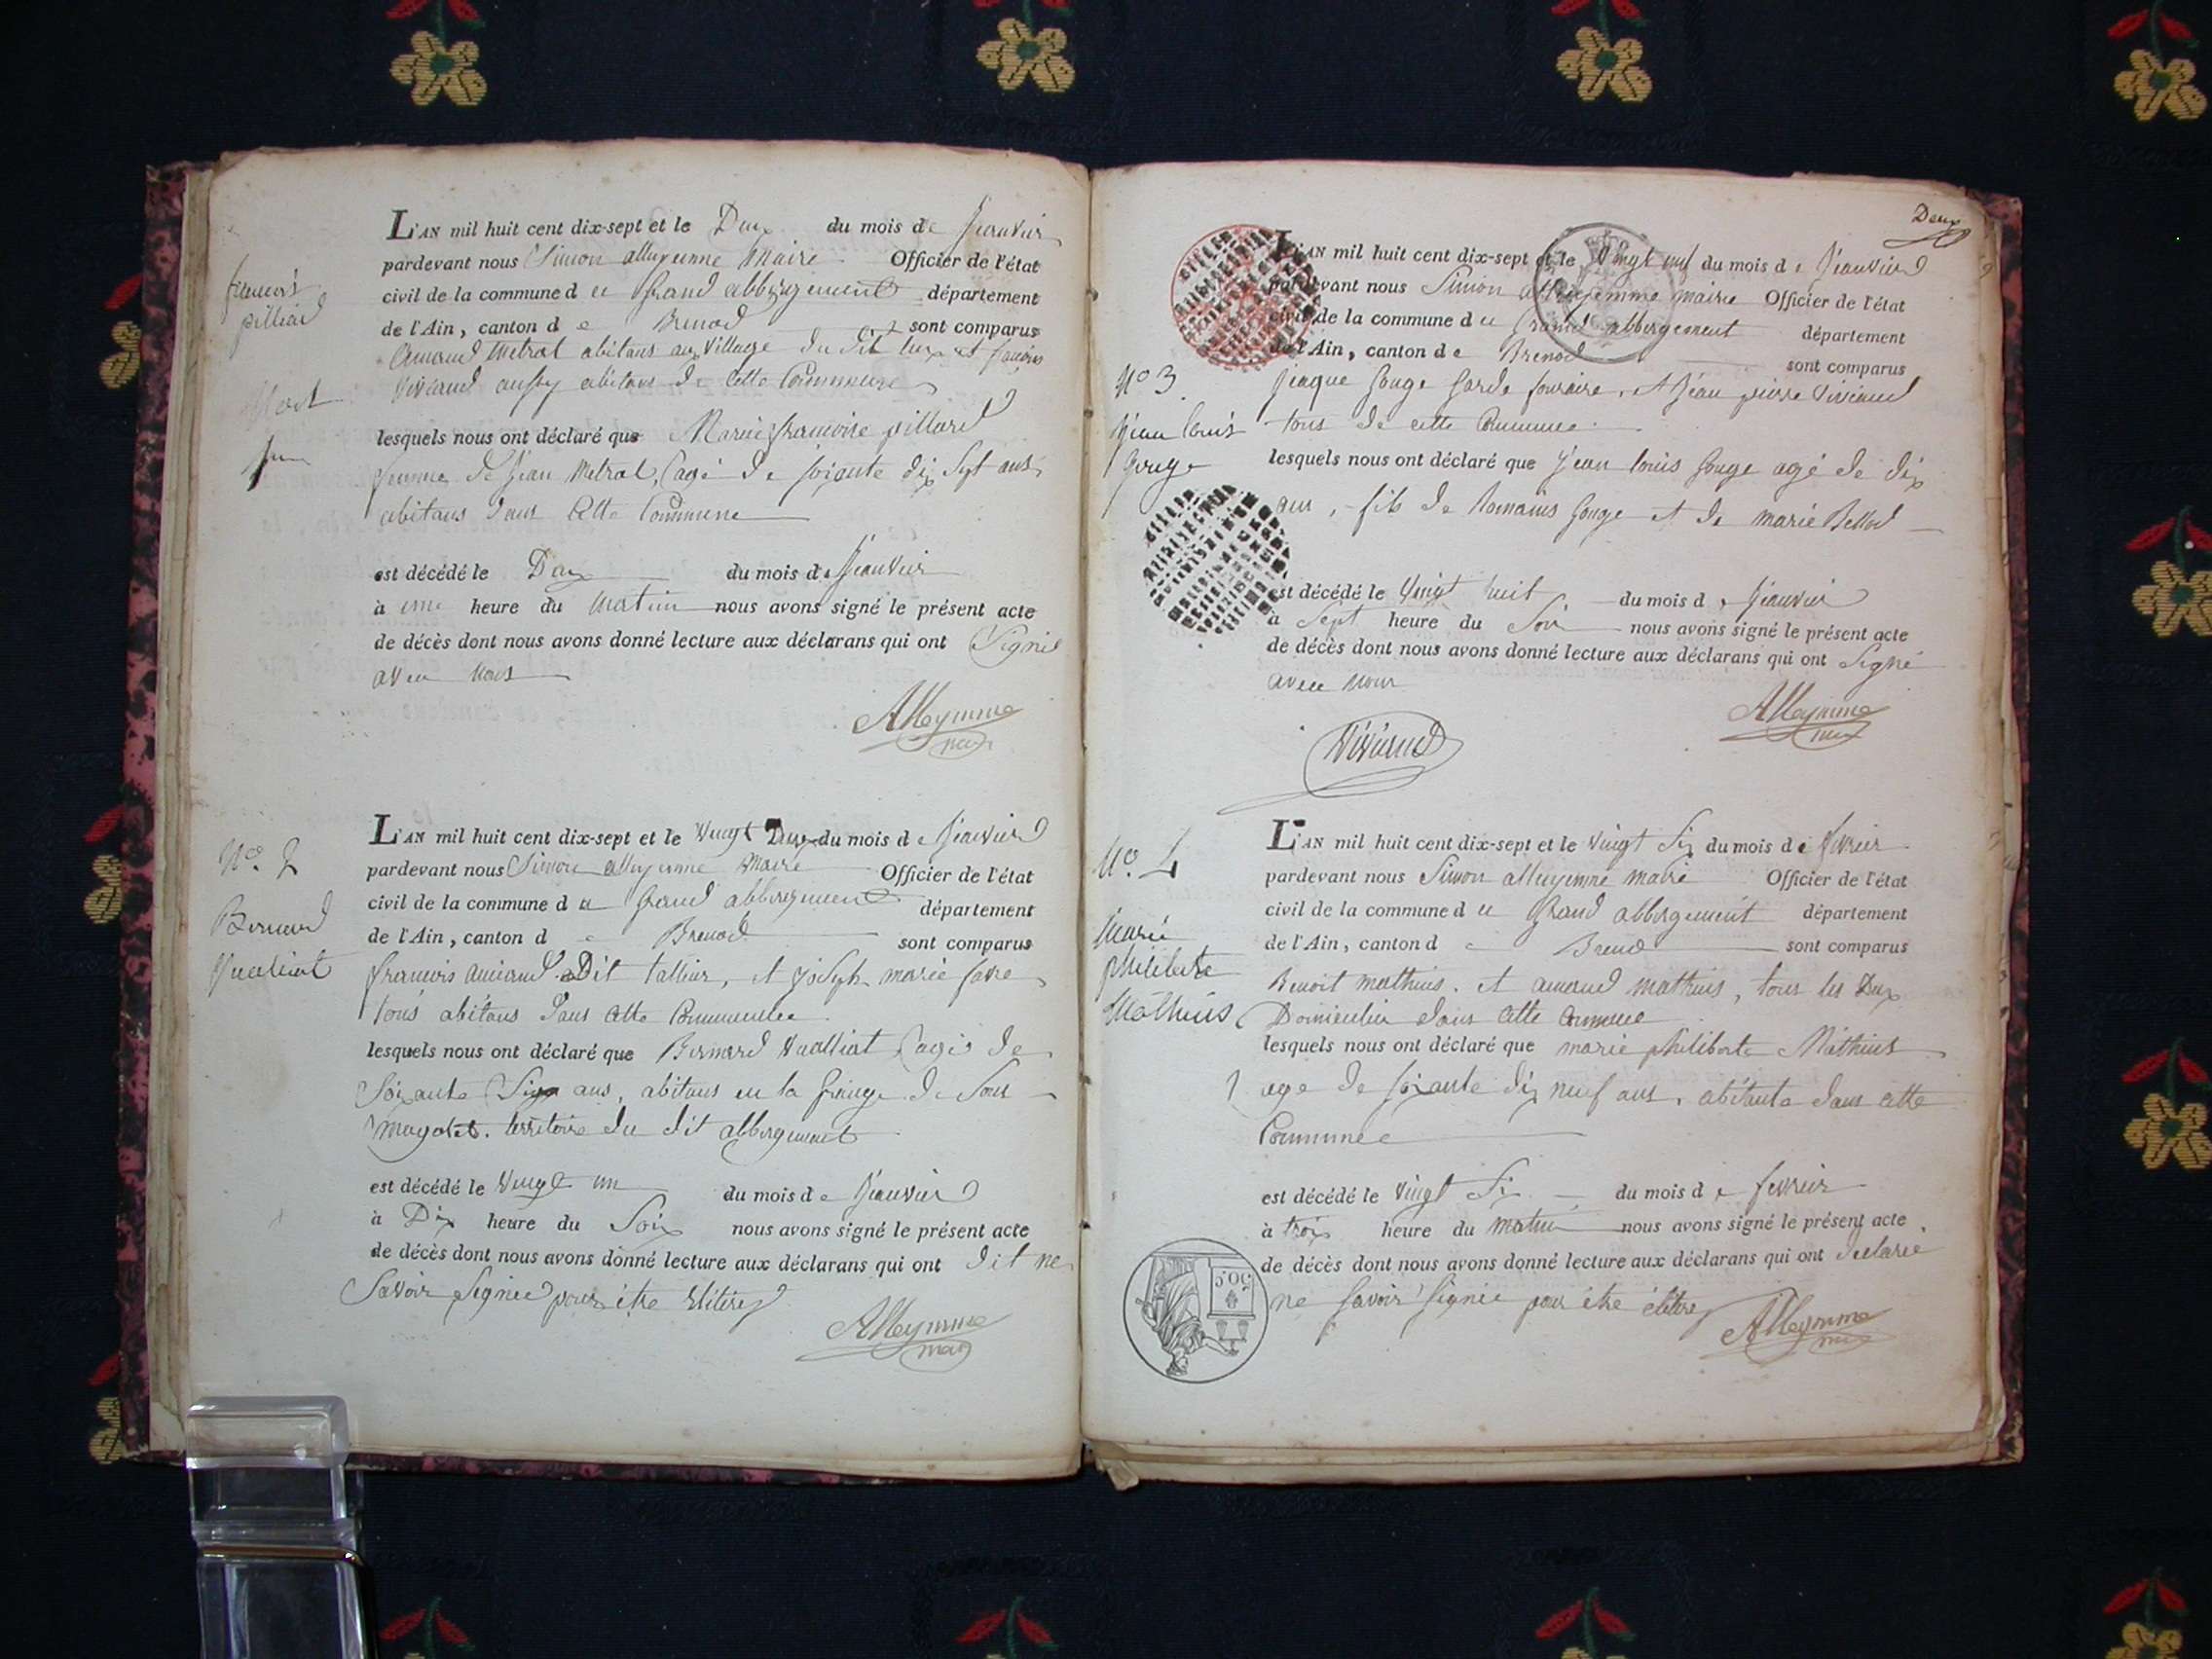 L'AN mil huit cent dix-sept et le Deux du mois de Jeanvier
pardevant nous Simon alleyemme Maire Officier de l'état
civil de la commune d u Grand abbergement département
de l'Ain, canton d e Brenod sont comparus
Amand Metral abitans au village du dit lieux et
Viviand aussy abitans de cette Commune
francois
pilliard
lesquels nous ont déclaré que Marie francoise pillard
femme de Jean Metral, agé de soixante dix Sept ans
abitans dans Cette Commune
est décédé le Deux du mois de Jeanvier
à une heure du Matin nous avons signé le présent acte
de décès dont nous avons donné lecture aux déclarans qui ont Signé
avec nous
Alleymme
L'AN mil huit cent dix-sept et le Vingt Deux du mois de Jeanvier
pardevant nous Simon alleyemme Maire Officier de l'état
civil de la commune d u Grand abbergement département
de l'Ain, canton d e Brenod sont comparus
francois amand Dit tallieur, et joseph marie favre
tous abitans dans Cette Commune
No. 2
Bernard
lesquels nous ont déclaré que Bernard agé de
Soixante Six ans, abitans en la Grange de Sous
territoire du dit abbergement
est décédé le Vingt un du mois de Jeanvier
à Dix heure du Soir nous avons signé le présent acte
de décès dont nous avons donné lecture aux déclarans qui ont dit ne
Savoir Signé pour être
Alleymme
Deux
L'AN mil huit cent dix-sept et le Vingt neuf du mois de Jeanvier
pardevant nous Simon alleyemme maire Officier de l'état
civil de la commune d u Grand abbergement département
de l'Ain, canton d e Brenod sont comparus
No 3
Jean louis
Gouge
Jeaque Gouge Garde et Jean pierre Viviand
tous de cette Commune
lesquels nous ont déclaré que Jean louis Gouge agé de dix
ans, fils de Romains Gouge et de marie Bellod
est décédé le Vingt huit du mois de Jeanvier
à Sept heure du Soir nous avons signé le présent acte
de décès dont nous avons donné lecture aux déclarans qui ont Signé
avec nous
Alleymme
Viviand
L'AN mil huit cent dix-sept et le Vingt Six du mois de fevrier
pardevant nous Simon alleyemme maire Officier de l'état
civil de la commune d u Grand abbergement département
de l'Ain, canton d e Brenod sont comparus
No. 4
Marie
philiberte
Mathieus
Benoit mathieus, et amand mathieus, tous les Deux
dans cette Commune
lesquels nous ont déclaré que marie philiberte Mathieus
age de soixante dix neuf ans, abitante dans cette
Commune
est décédé le Vingt Six du mois de fevrier
à trois heure du matin nous avons signé le présent acte
de décès dont nous avons donné lecture aux déclarans qui ont declaré
ne savoir signé pour être
Alleymme
50c